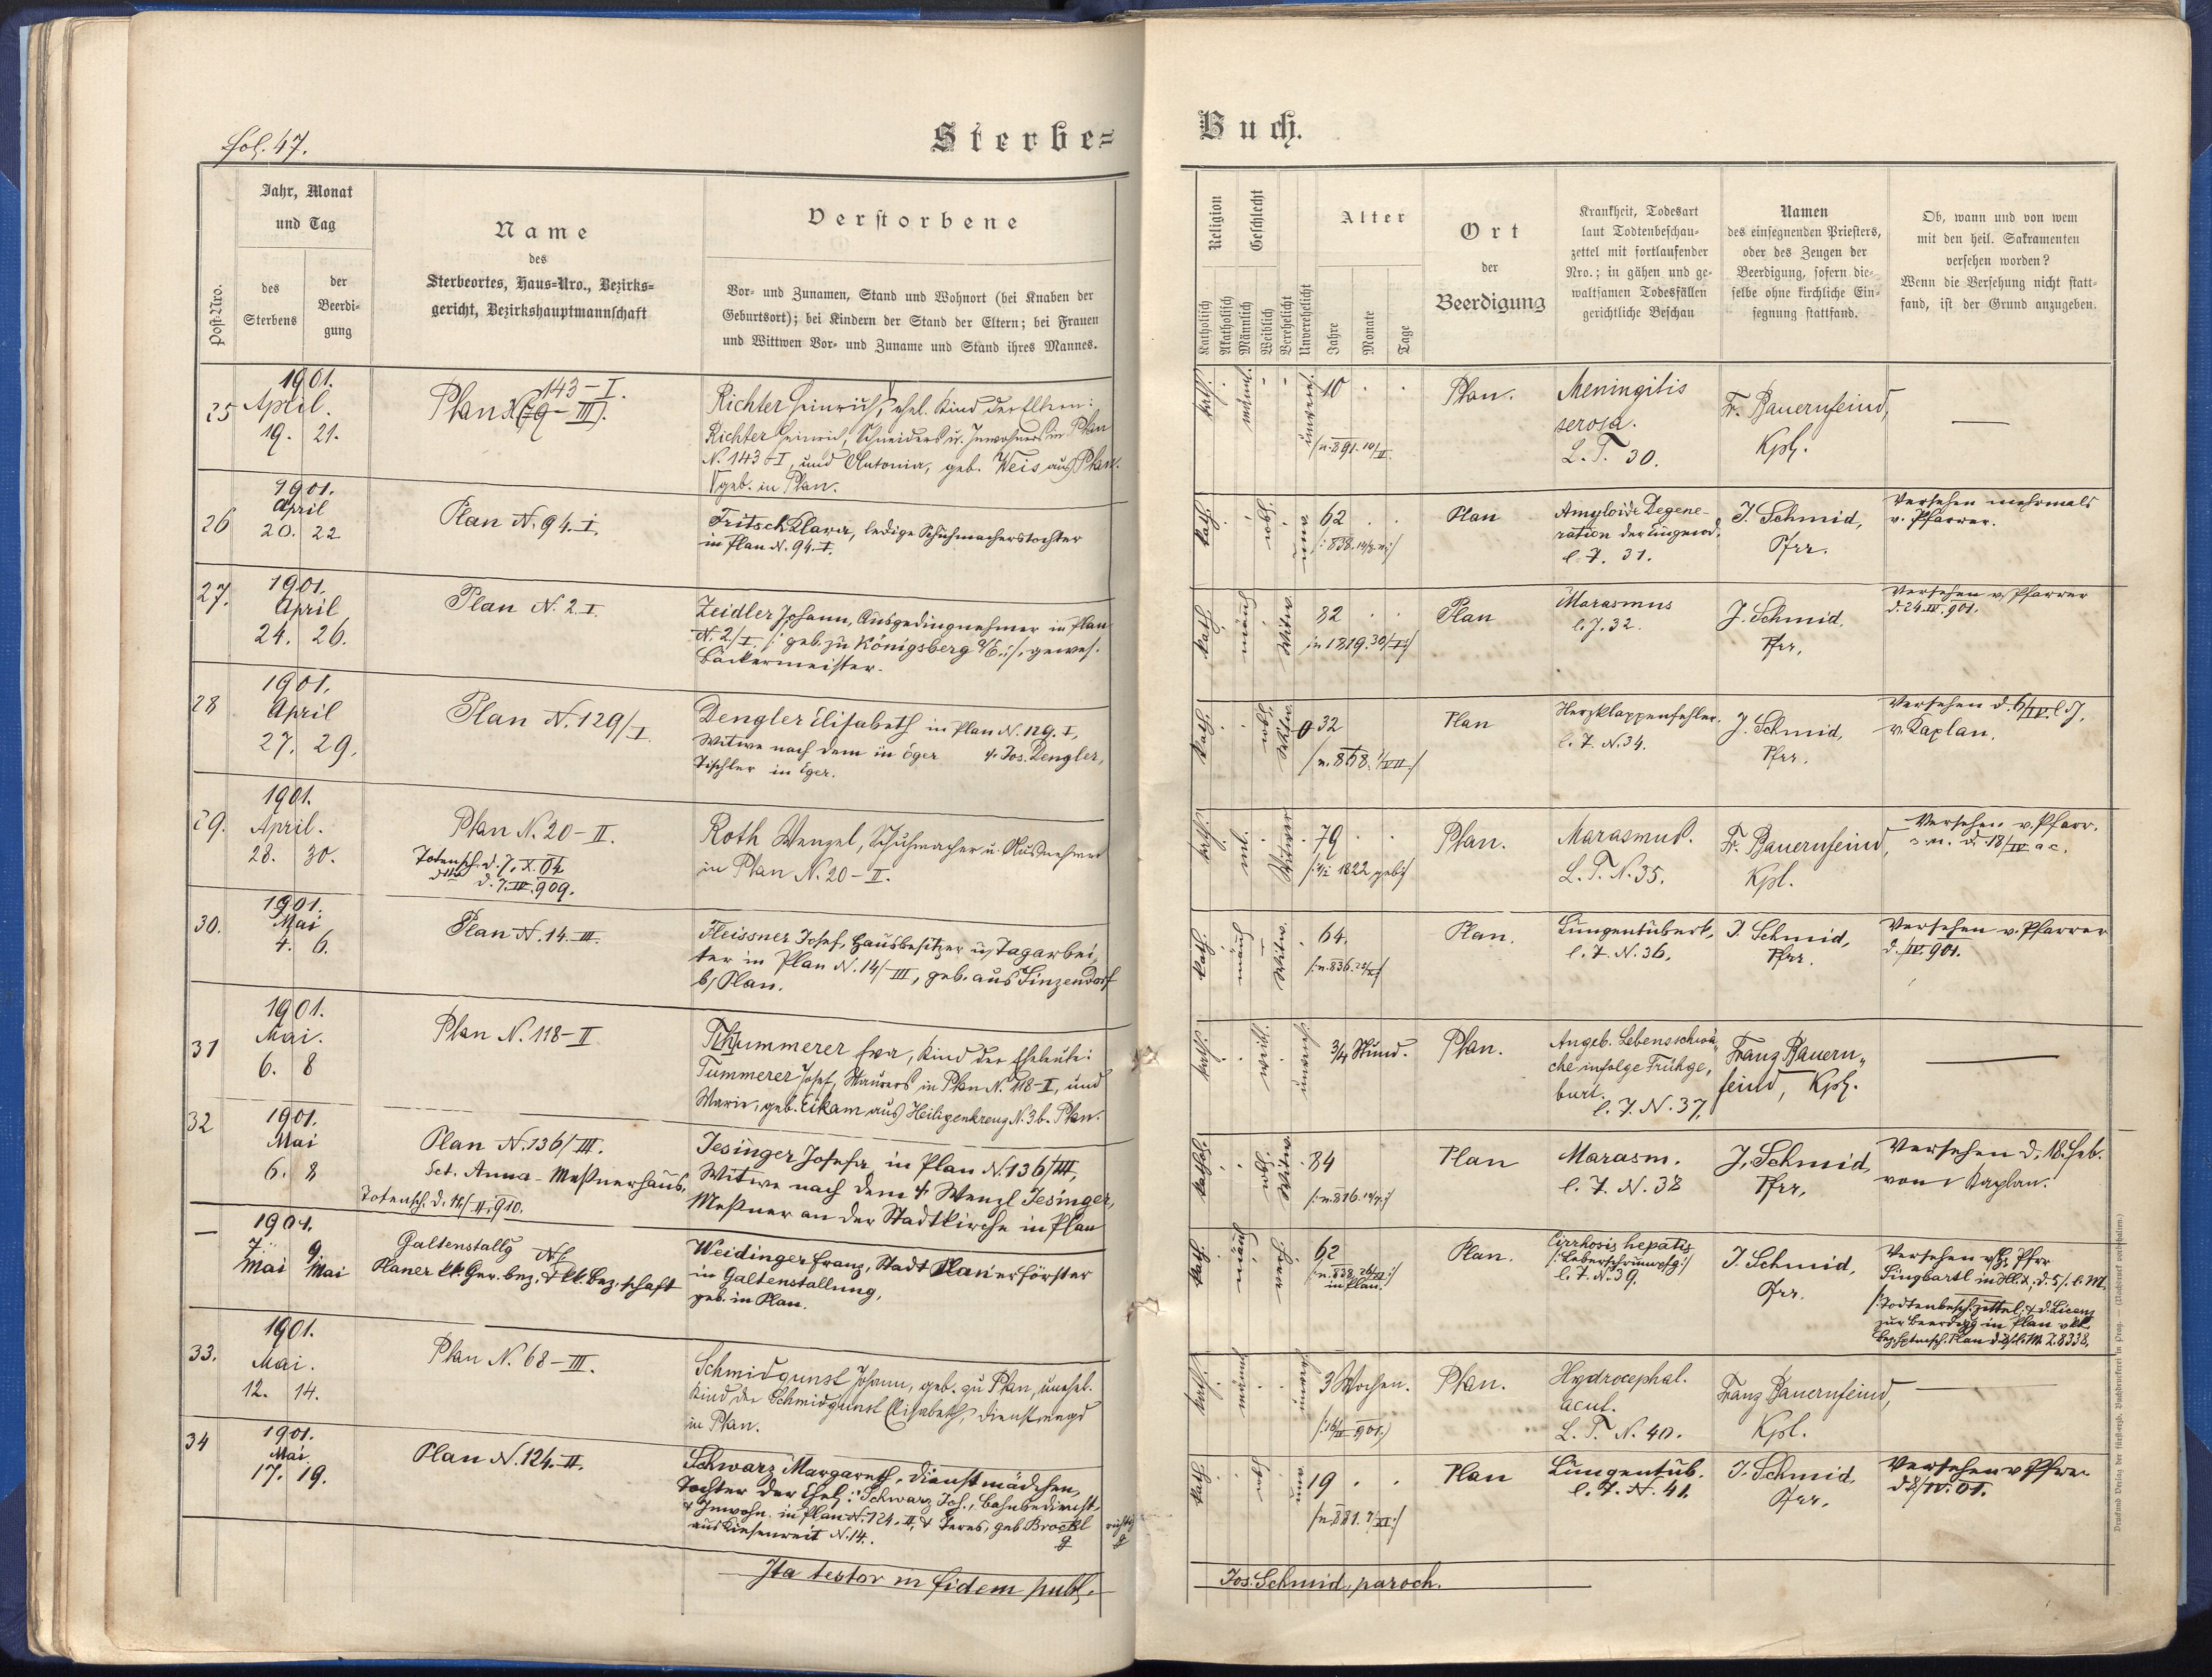 fol. 47.
Sterbe=
Buch.
Post-Nro.
Jahr, Monat
und Tag
des
Sterbens
der
Beerdi-
gung
Name
des
Sterbeortes, Haus=Nro., Bezirks=
gericht, Bezirkshauptmannschaft
Verstorbene
Vor- und Zunamen, Stand und Wohnort (bei Knaben der
Geburtsort); bei Kindern der Stand der Eltern; bei Frauen
und Wittwen Vor- und Zuname und Stand ihres Mannes.
Religion
Katholisch
Akatholisch
Geschlecht
Männlich
Weiblich
Verehelicht
Unverehelicht
Alter
Jahre
Monate
Tage
Ort
der
Beerdigung
Krankheit, Todesart
laut Todtenbeschau-
zettel mit fortlaufender
Nro.; in gähen und ge-
waltsamen Todesfällen
gerichtliche Beschau
Namen
des einsegnenden Priesters,
oder des Zeugen der
Beerdigung, sofern die-
selbe ohne kirchliche Ein-
segnung stattfand.
Ob, wann und von wem
mit den heil. Sakramenten
versehen worden?
Wenn die Versehung nicht statt-
fand, ist der Grund anzugeben.
25
1901.
April.
19. 21.
143-I.
Plan
Richter Heinrich, ehel. Kind der Eltern:
Richter Heinrich, Schneiders u. Inwohners in Plan
N. 143-I, und Antonia, geb. Weis aus Plan.
geb. in Plan.
kath.
männl.
10
Plan.
Meningitis
serosa.
L. T. 30.
Fr. Bauernfeind,
Kpl.
26
1901.
April
20. 22
Plan N. 94. I.
Fritsch Klara, ledige Schuhmacherstochter
in Plan N. 94. I.
kath.
62
Plan
Amyloide Degene-
ration der
l. T. 31.
J. Schmid,
Pfrr.
Versehen mehrmals
v. Pfarrer.
27.
1901.
April
24. 26.
Plan N. 2. I.
Zeidler Johann, Ausgedingnehmer in Plan
N. 2./I. /: geb. zu Königsberg a/E. :/, gewes.
Bäckermeister.
kath.
männl
Witw.
82
/n 1819. 30/
Plan
Marasmus
l. T. 32.
J. Schmid.
Pfrr.
Versehen v. Pfarrer
d. 24. IV. 901.
28
1901.
April
27. 29.
Plan N. 129/I
Dengler Elisabeth in Plan N. 129. I,
Witwe nach dem in Eger † Jos. Dengler,
Tischler in Eger.
kath.
wbl.
Witw.
32
Plan
Herzklappenfehler.
l. T. N. 34.
J. Schmid,
Pfrr.
Versehen d. 6/IV. l. J.
v. Kaplan.
29.
1901.
April.
28. 30.
Plan N. 20-II.
Totensch. d. 7. X. 04
dtto d. 7. IV. 909.
Roth Wenzel, Schuhmacher u. Ausnehmer
in Plan N. 20-II.
kath.
ml.
Witwer
79
1822 geb.
Plan.
Marasmus.
L. T. N. 35.
Fr. Bauernfeind,
Kpl.
Versehen v. Pfarr.
d. 18/IV a c.
30.
1901.
Mai
4. 6.
Plan N. 14. III.
Fleissner Josef, Hausbesitzer u. Tagarbei,
ter in Plan N. 14/III, geb. aus Sinzendorf
b/Plan.
kath.
männl
Witw.
64.
Plan.
Lungentuberk.
l. T. N. 36.
J. Schmid,
Pfrr.
Versehen v. Pfarrer
d. /IV. 901.
31
1901.
Mai.
6. 8
Plan N. 118-II
Thummerer Eva, Kind der Eheleute:
Tummerer Josef, Maurers in Plan N. 118-II, und
Marie, geb. Eikam aus Heiligenkreuz N. 3 b. Plan.
kath.
weibl.
unvereh.
3/4 Stund.
Plan.
Angeb. Lebensschwä„
che infolge Frühge,
burt.
l. T. N. 37.
Franz Bauern„
feind, Kpl.
32
1901.
Mai
6. 8
Plan N. 136/III.
Sct. Anna-Meßnerhaus.
Totensch. d. 14/II. 910.
Jesinger Josefa, in Plan N. 136/III,
Witwe nach dem † Wenzl Jesinger,
Meßner an der Stadtkirche in Plan
kathol.
wbl.
Witw.
84
Plan
Marasm.
l. T. N. 38
J. Schmid,
Pfrr.
Versehen d. 18. Feb.
von Kaplan.
—
1901.
7. 9.
Mai Mai
Galtenstallg
Planer kk. Ger. bez. & kk. Bez.schaft
Weidinger Franz, Stadt Plan'erförster
in Galtenstallung,
geb. in Plan.
kath.
männl
vereh.
62
in Plan.
Plan.
Cirrhosis hepatis
/: Leberschrumpfg :/
l. T. N. 39.
J. Schmid,
Pfrr.
Versehen v. H. Pfrr
Singbartl in Hl. , d. 5/. l. M.
/: Todtenbesch.zettel, & d. Licenz
zur Beerdigg in Plan v kk
Bez.hptmsch. Plan Z. 8338.
33.
1901.
Mai.
12. 14.
Plan N. 68-III.
Schmidgunst Johann, geb. zu Plan, unehel.
Kind der Schmidgunst Elisabeth, Dienstmagd
in Plan.
kath.
männl
unvereh
3 Wochen.
Plan.
Hydrocephal.
acut.
L. T. N. 40.
Franz Bauernfeind,
Kpl.
34
1901.
Mai
17. 19.
Plan N. 124. II.
Schwarz Margareth, Dienstmädchen,
Tochter der Ehel: Schwarz Joh., Bahnbedienst.
& Inwohn. in Plan N. 124. II, & Teres, geb. Brockl
aus Kiesenreit N. 14.
richtig
kath.
19
Plan
Lungentub.
l. T. N. 41.
J. Schmid,
Pfrr.
Versehen v Pfrr
Ita testor in fidem publ.
Jos. Schmid, paroch.